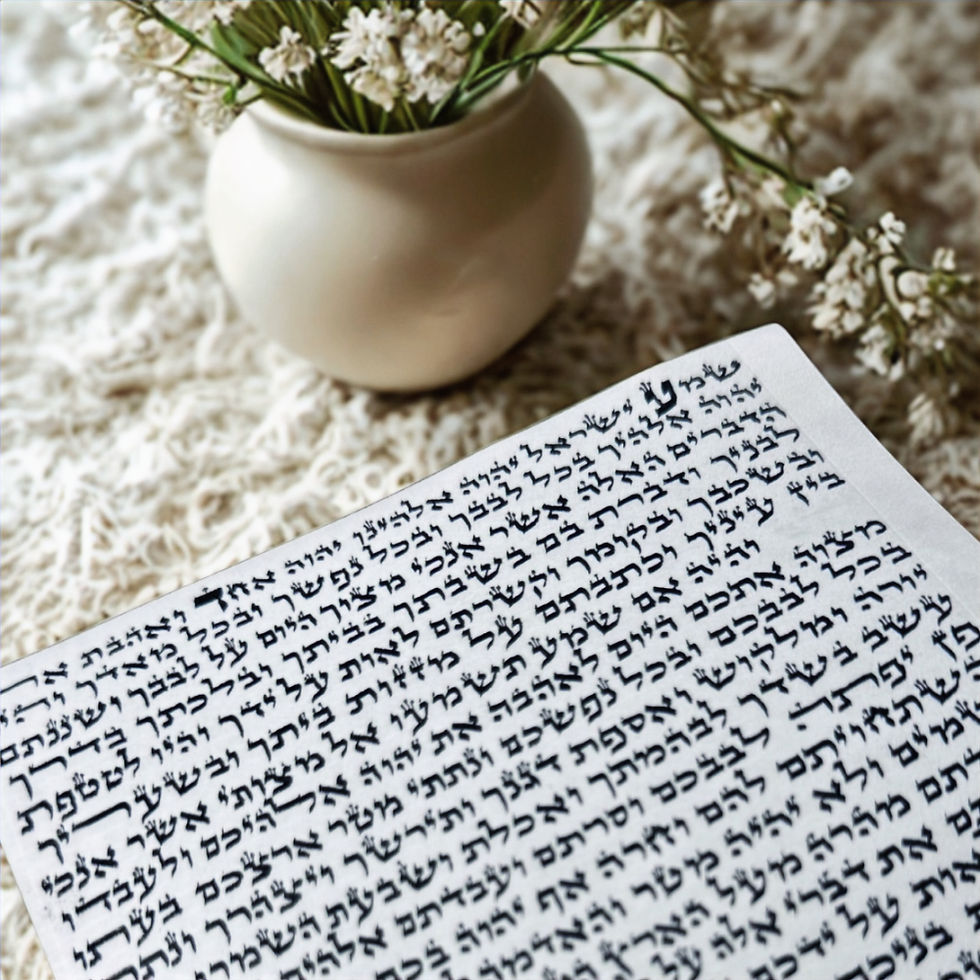 שמע ישראל יהוה אלהינו יהוה אחד ואהבת את
יהוה אלהיך בכל לבבך ובכל נפשך ובכל מאדך והי
הדברים האלה אשר אנכי מצוך היום על לבבך ושננתם
לבניך ודברת בם בשבתך בביתך ובלכתך בדרך
ובשכבך ובקומך וקשרתם לאות על ידך והיו לטטפת
בין עיניך וכתבתם על מזזות ביתך ובשעריך
והיה אם שמע תשמעו אל מצותי אשר אנכי
מצוה אתכם היום לאהבה את יהוה אלהיכם ולעבדו
בכל לבבכם ובכל נפשכם ונתתי מטר ארצכם בעתו
יורה ומלקוש ואספת דגנך ותירשך ויצהרך ונתת
עשב בשדך לבהמתך ואכלת ושבעת השמרו
פן יפתה לבבכם וסרתם ועבדתם אלהי
שתחויתם להם וחרה אף יהוה בכם
שמים ולא יהיה מטר והאדמ
תם מהרה מעל הארץ
את דברי אלה
אות על ידכ
בניכם